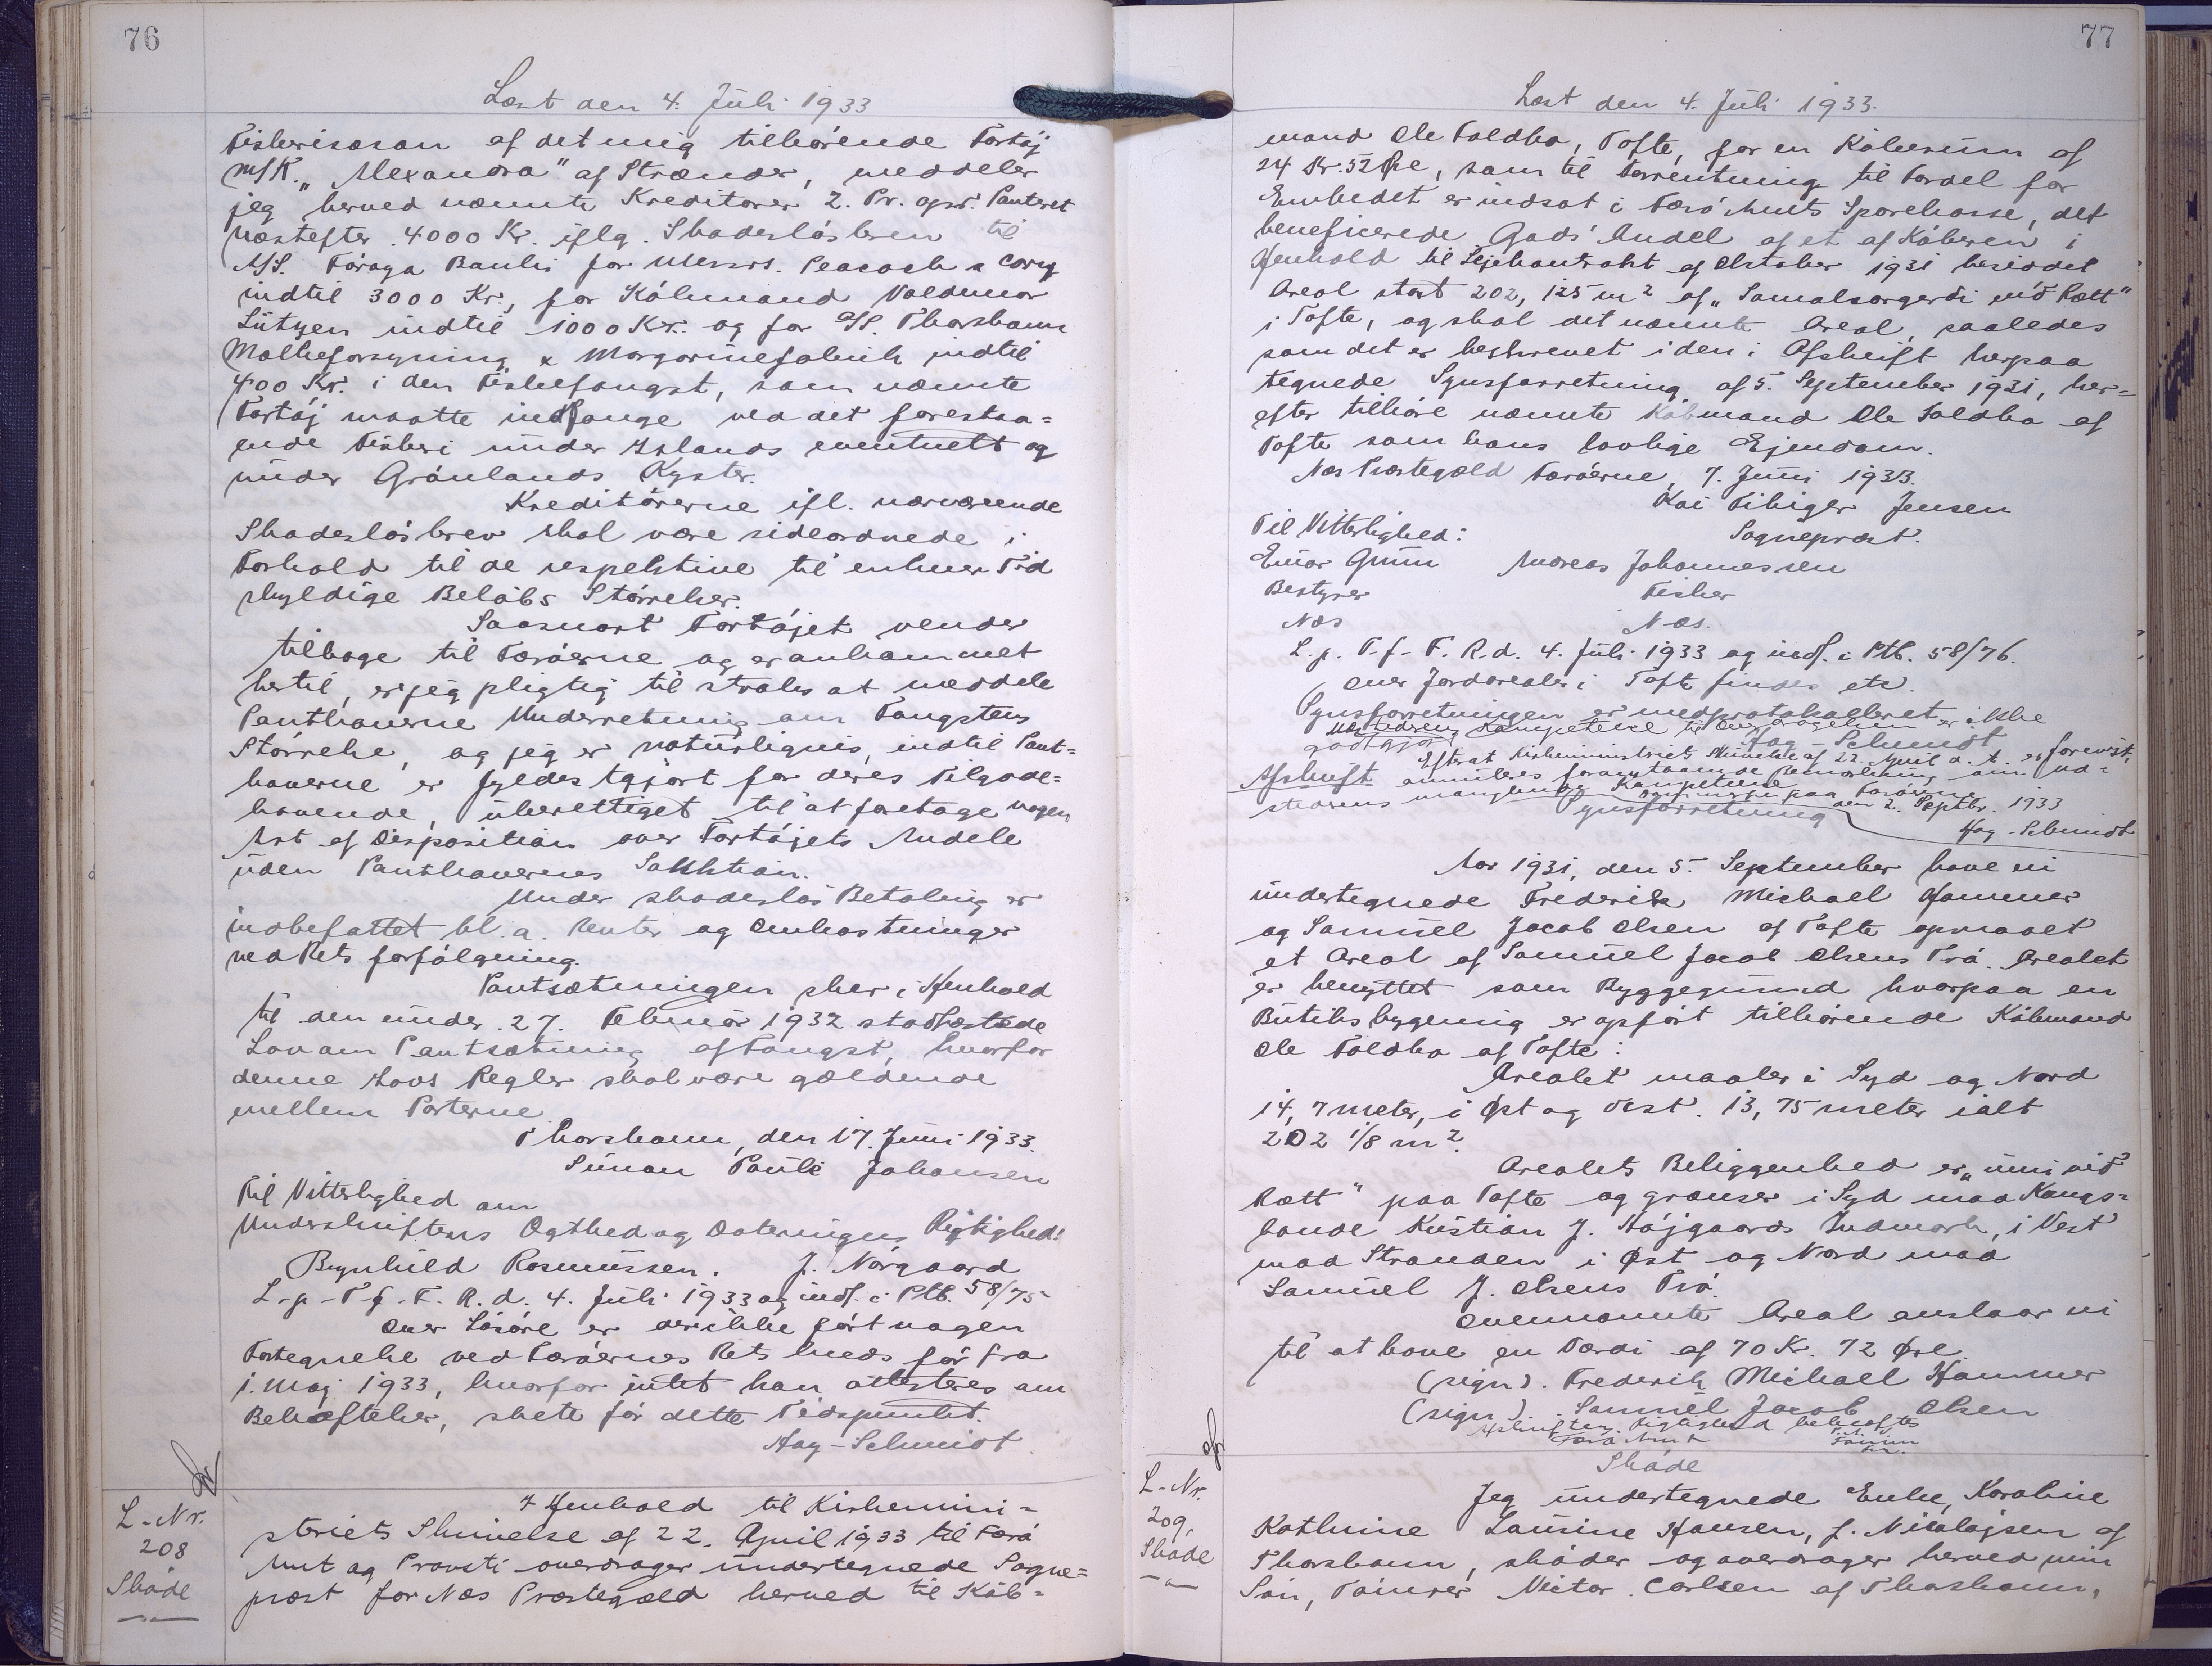 76
Læst den 4. Juli 1933
Fiskerisæson af det mig tilhørende Fartøj
M/K. „Alexandra" af Strænder, meddeler
jeg herved nævnte Kreditorer 2. Pr. opr. Panteret
næstefter 4000 Kr. iflg. Skadesløsbrev til
A/S. Føroya Banki for Messrs. Peacock & Cory
indtil 3000 Kr., for Købmand Valdemar
Lützen indtil 1000 Kr. og for A/S. Thorshavn
Mælkeforsyning & Margarinefabrik indtil
400 Kr. i den Fiskefangst, som nævnte
Fartøj maatte indfange ved det forestaa=
ende Fiskeri under Islands eventuelt og
under Grønlands Kyster.
Kreditorerne ifl. nærværende
Skadesløsbrev skal være sideordnede i
Forhold til de respektive til enhver Tid
skyldige Beløbs Størrelser.
Saasnart Fartøjet vender
tilbage til Færøerne og er ankommet
hertil, er jeg pligtig til straks at meddele
Panthaverne Underretning om Fangstens
Størrelse, og jeg er naturligvis, indtil Pant=
haverne er fyldestgjort for deres Tilgode=
havende, uberettiget til at foretage nogen
Art af Disposition over Fartøjets Andele
uden Panthavernes Sanktion.
Under skadesløs Betaling er
indbefattet bl. a. Renter og Omkostninger
ved Rets forfølgning.
Pantsætningen sker i Henhold
til den under 27. Februar 1932 stadfæstede
Lov om Pantsætning af Fangst, hvorfor
denne Lovs Regler skal være gældende
mellem Parterne
Thorshavn, den 17. Juni 1933.
Simon Pauli Johansen
Til Vitterlighed om
Underskriftens Ægthed og Dateringens Rigtighed:
Brynhild Rasmussen. J. Nørgaard
L-p-T-f-F. R. d. 4. Juli 1933 og indf. i Ptb. 58/75
Over Løsøre er der ikke ført nogen
Fortegnelse ved Færøernes Rets kreds før fra
1. Maj 1933, hvorfor intet kan attesteres om
Behæftelser, skete før dette Tidspunkt.
Aag-Schmidt
L-Nr.
208
Skøde
I Henhold til Kirkemini=
steriets Skrivelse af 22. April 1933 til Færø
Amt og Provsti overdrager undertegnede Sogne=
præst for Næs Præstegæld herved til Køb=
77
Læst den 4. Juli 1933.
mand Ole Toldbo, Tofte, for en Købesum af
24 Kr. 52 Øre, som til Forrentning til Fordel for
Embedet er indsat i Færø Amts Sparekasse, det
beneficerede Gods' Andel af et af Køberen i
Henhold til Lejekontrakt af Oktober 1931 besiddet
Areal stort 202,125 m² af „
i Tofte, og skal det nævnte Areal, saaledes
som det er beskrevet i den i Afskrift herpaa
tegnede Synsforretning af 5. September 1931, her=
efter tilhøre nævnte Købmand Ole Toldbo af
Tofte som hans lovlige Ejendom.
Næs Præstegæld Færøerne, 7. Juni 1933.
Kai Fibiger Jensen
Til Vitterlighed: Sognepræst.
Einar Andreas Johannessen
Bestyrer Fisker
Næs Næs.
L. p. T-f-F. R. d. 4. Juli 1933 og indf. i Ptb. 58/76.
Over Jordarealer i Tofte findes etc.
Synsforretningen er medprotokolleret
Udstederens Kompetence til Overdragelsen er ikke
godtgjort Aag-Schmidt
Efter at Kirkeministeriets Skrivelse af 22. April d. A. er forevist,
Afskrift annulleres foranstaaende Bemærkning om Ud=
stederens manglende Kompetence
paa Færøerne den 2. Septbr. 1933
Synsforretning Aag-Schmidt
Aar 1931, den 5. September have vi
undertegnede Frederik Michael Hammer
og Samuel Jacob Olsen af Tofte opmaalt
et Areal af Samuel Jacob Olsens Trø. Arealet
er benyttet som Byggegrund hvorpaa en
Butiksbygning er opført tilhørende Købmand
Ole Toldbo af Tofte:
Arealet maaler i Syd og Nord
14,7 meter, i Øst og Vest. 13,75 meter ialt
202 1/8 m².
Arealets Beliggenhed er „inni við
Rætt" paa Tofte og grænser i Syd mod Kongs=
bonde Kristian J. Højgaards Indmark, i Vest
mod Stranden i Øst og Nord mod
Samuel J. Olsens Trø.
Ovennævnte Areal anslaar vi
til at have en Værdi af 70 Kr. 72 Øre
(sign). Frederik Michael Hammer
(sign) Samuel Jacob Olsen
Afskriftens Rigtighed bekræftes
Færø Amt
L-Nr.
209,
Skøde
Skøde
Jeg undertegnede Enke, Karoline
Kathrine Laurine Hansen, f. Nicolajsen af
Thorshavn, skøder og overdrager herved min
Søn, Tømrer Victor Carlsen af Thorshavn,